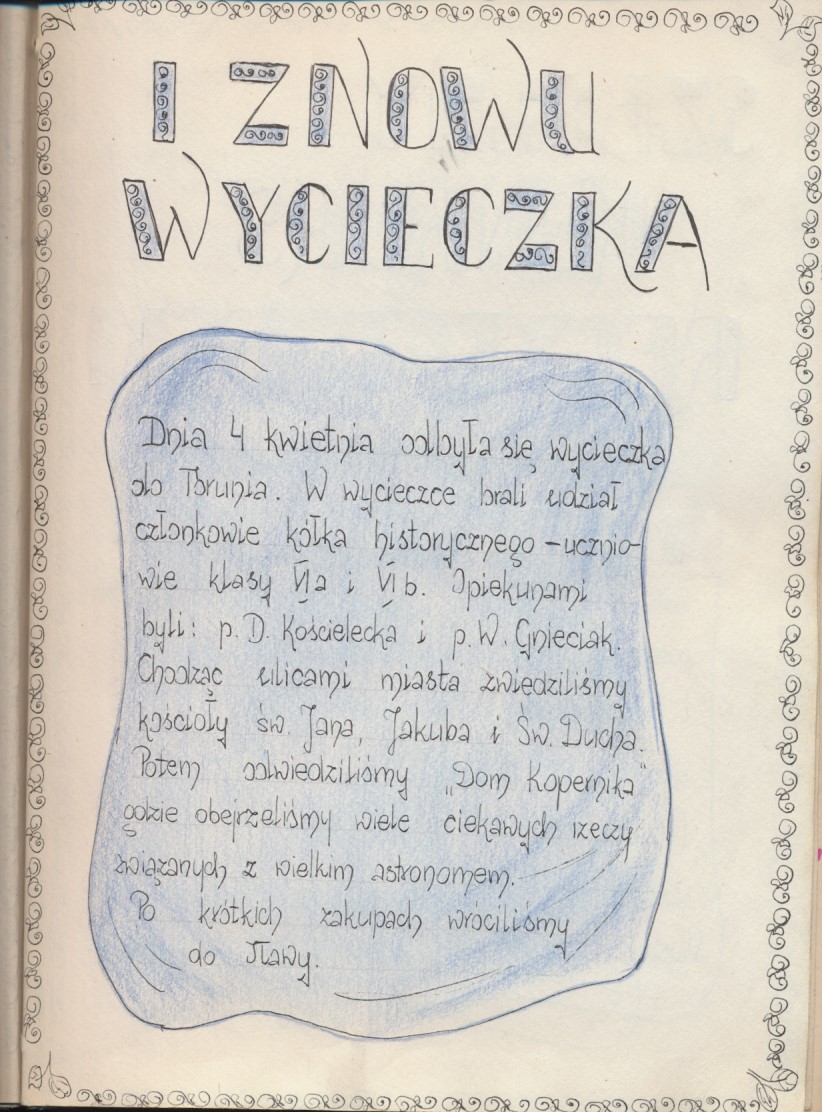 I ZNOWU
WYCIECZKA
Dnia 4 kwietnia odbyła się wycieczka
do Torunia. W wycieczce brali udział
członkowie kółka historycznego - ucznio-
wie klasy VI a i VI b. Opiekunami
byli: p. D. Kościelecka i p. W. Gnieciak.
Chodząc ulicami miasta zwiedziliśmy
kościoły św. Jana, Jakuba i Św. Ducha.
Potem odwiedziliśmy „Dom Kopernika"
gdzie obejrzeliśmy wiele ciekawych rzeczy
związanych z wielkim astronomem.
Po krótkich zakupach wróciliśmy
do Iławy.